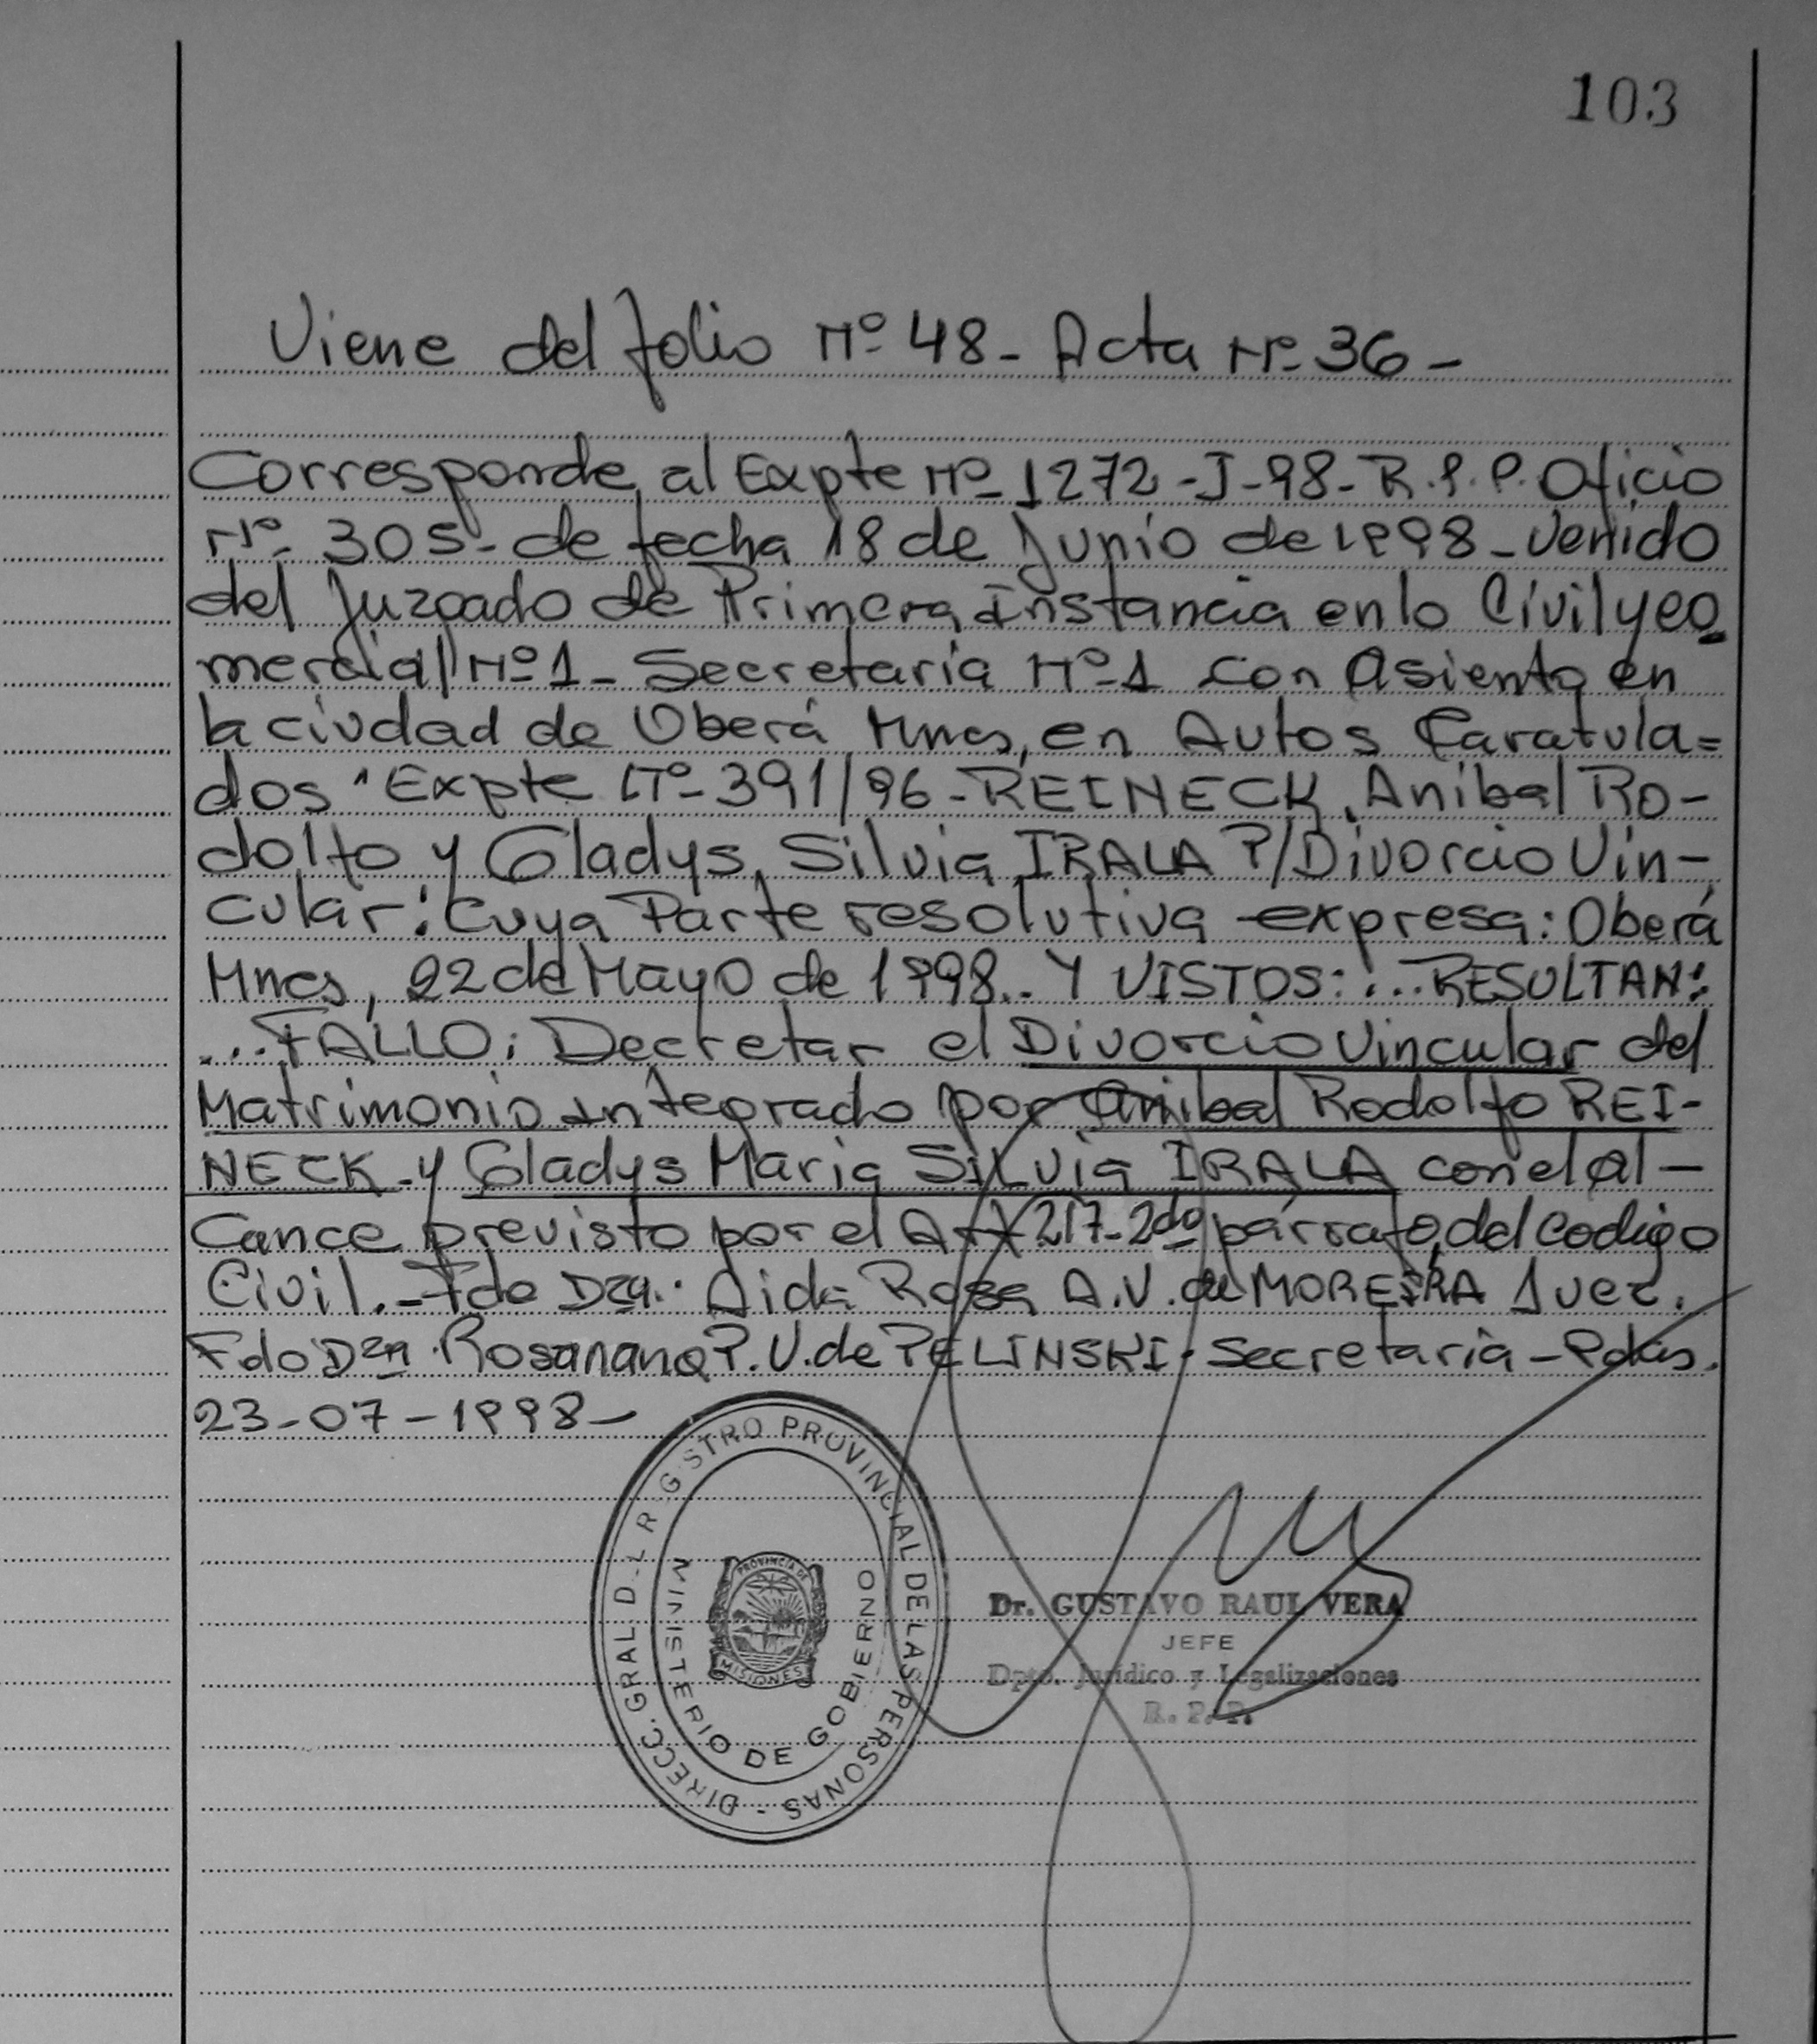 103
Viene del folio Nº 48 - Acta Nº 36 -
Corresponde al Expte Nº 1272 - J - 98 - R.P.P. Oficio
Nº 305 - de fecha 18 de Junio de 1998 - venido
del Juzgado de Primera Instancia en lo Civil y Co
mercial Nº 1 - Secretaria Nº 1 con Asiento en
la ciudad de Oberá Mnes, en Autos Caratula=
dos "Expte Nº 391/96 - REINECK, Anibal Ro-
dolfo y Gladys Silvia IRALA P/Divorcio Vin-
cular: Cuya Parte resolutiva expresa: Oberá
Mnes, 22 de Mayo de 1998.. Y VISTOS: ... RESULTAN:
... FALLO: Decretar el Divorcio Vincular del
Matrimonio integrado por Anibal Rodolfo REI-
NECK y Gladys Maria Silvia IRALA con el al-
cance previsto por el Art 217 - 2do párrafo, del Codigo
Civil. - Fdo Dra. Aida Rosa A.V. de MOREIRA Juez.
Fdo Dra. Rosanana P.V. de PELINSKI. Secretaria - Pdas.
23 - 07 - 1998 -
DIRECC. GRAL D_L R_GISTRO PROVINCIAL DE LAS PERSONAS -
MINISTERIO DE GOBIERNO
PROVINCIA DE
MISIONES
Dr. GUSTAVO RAUL VERA
JEFE
Dpto. Jurídico y Legalizaciones
R. P. P.